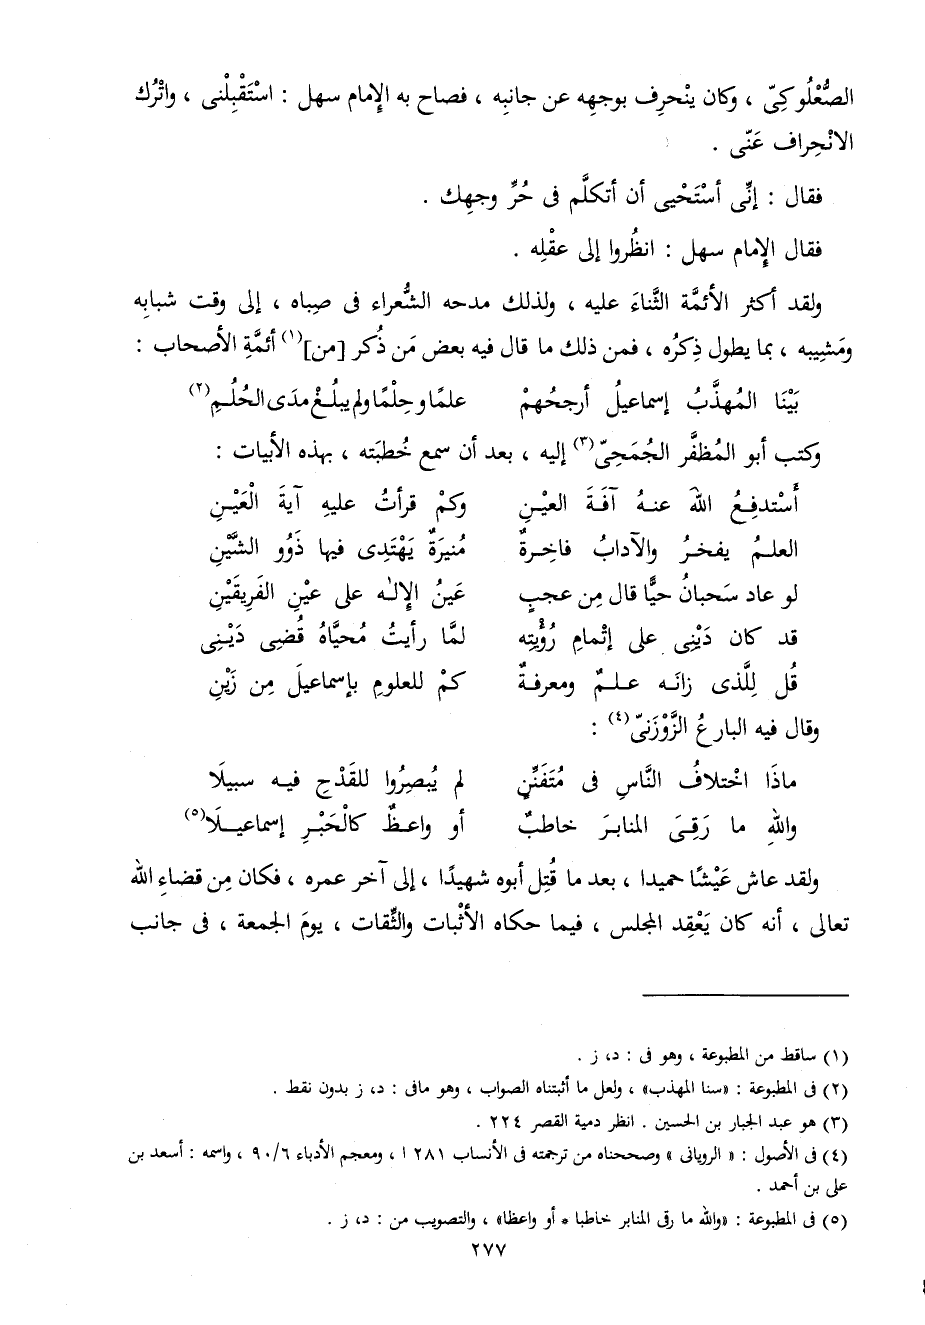 الصُّعْلُوكِىّ ، وكان ينْحرِف بوجهِه عن جانبِه ، فصاح به الإمام سهل : اسْتَقْبِلْنى ، واتْرُك
الانْحِراف عَنّى .
فقال : إنِّى أسْتَحْيى أن أتكلَّم فى حُرِّ وجهِك .
فقال الإمام سهل : انظُروا إلى عقْلِه .
ولقد أكثر الأئمَّة الثَّناءَ عليه ، ولذلك مدحه الشُّعراء فى صِباه ، إلى وقت شبابِه
ومَشِيبه ، بما يطول ذِكرُه ، فمن ذلك ما قال فيه بعض مَن ذُكر [من]⁽¹⁾ أئمَّةِ الأصحاب :
بَيْنَا المُهذَّبُ إسماعيلُ أرجحُهمْ علمًا وحِلْمًا ولم يبلُغْ مدَى الحُلُمِ⁽٢⁾
وكتب أبو المُظفَّر الجُمَحِىّ⁽٣⁾ إليه ، بعد أن سمع خُطبَته ، بهذه الأبيات :
أَسْتدفِعُ اللهَ عنهُ آفَةَ العيْنِ وكمْ قرأتُ عليهِ آيةَ الْعَيْنِ
العلمُ يفخرُ والآدابُ فاخِرةٌ مُنيرَةٌ يَهْتدِى فيها ذَوُو الشَّيْنِ
لو عاد سَحبانُ حيًّا قال مِن عجبٍ عَينُ الإلٰه على عيْنِ الفَرِيقَيْنِ
قد كان دَيْنِى على إتْمامِ رُؤْيتِه لمَّا رأيتُ مُحيَّاهُ قُضِى دَيْنِى
قُل لِلَّذى زانَه علمٌ ومعرفةٌ كمْ للعلومِ بإسماعيلَ مِن زَيْنِ
وقال فيه البارعُ الزَّوْزَنىّ⁽٤⁾ :
ماذَا اخْتلافُ النَّاسِ فى مُتَفَنِّنٍ لم يُبصِرُوا للقَدْحِ فيه سبيلَا
واللهِ ما رَقِىَ المنابرَ خاطبٌ أو واعظٌ كالْحَبْرِ إسماعيلَا⁽٥⁾
ولقد عاش عَيْشًا حميدا ، بعد ما قُتِل أبوه شهيدًا ، إلى آخر عمره ، فكان مِن قضاءِ الله
تعالى ، أنه كان يَعْقِد المجلس ، فيما حكاه الأثْبات والثِّقات ، يومَ الجمعة ، فى جانب
(١) ساقط من المطبوعة ، وهو فى : د، ز .
(٢) فى المطبوعة : «سنا المهذب» ، ولعل ما أثبتناه الصواب ، وهو مافى : د، ز بدون نقط .
(٣) هو عبد الجبار بن الحسين . انظر دمية القصر ٢٢٤ .
(٤) فى الأصول : « الرويانى » وصححناه من ترجمته فى الأنساب ٢٨١ ا ، ومعجم الأدباء ٩٠/٦ ، واسمه : أسعد بن
على بن أحمد .
(٥) فى المطبوعة : «والله ما رقى المنابر خاطبا * أو واعظا» ، والتصويب من : د، ز .
٢٧٧